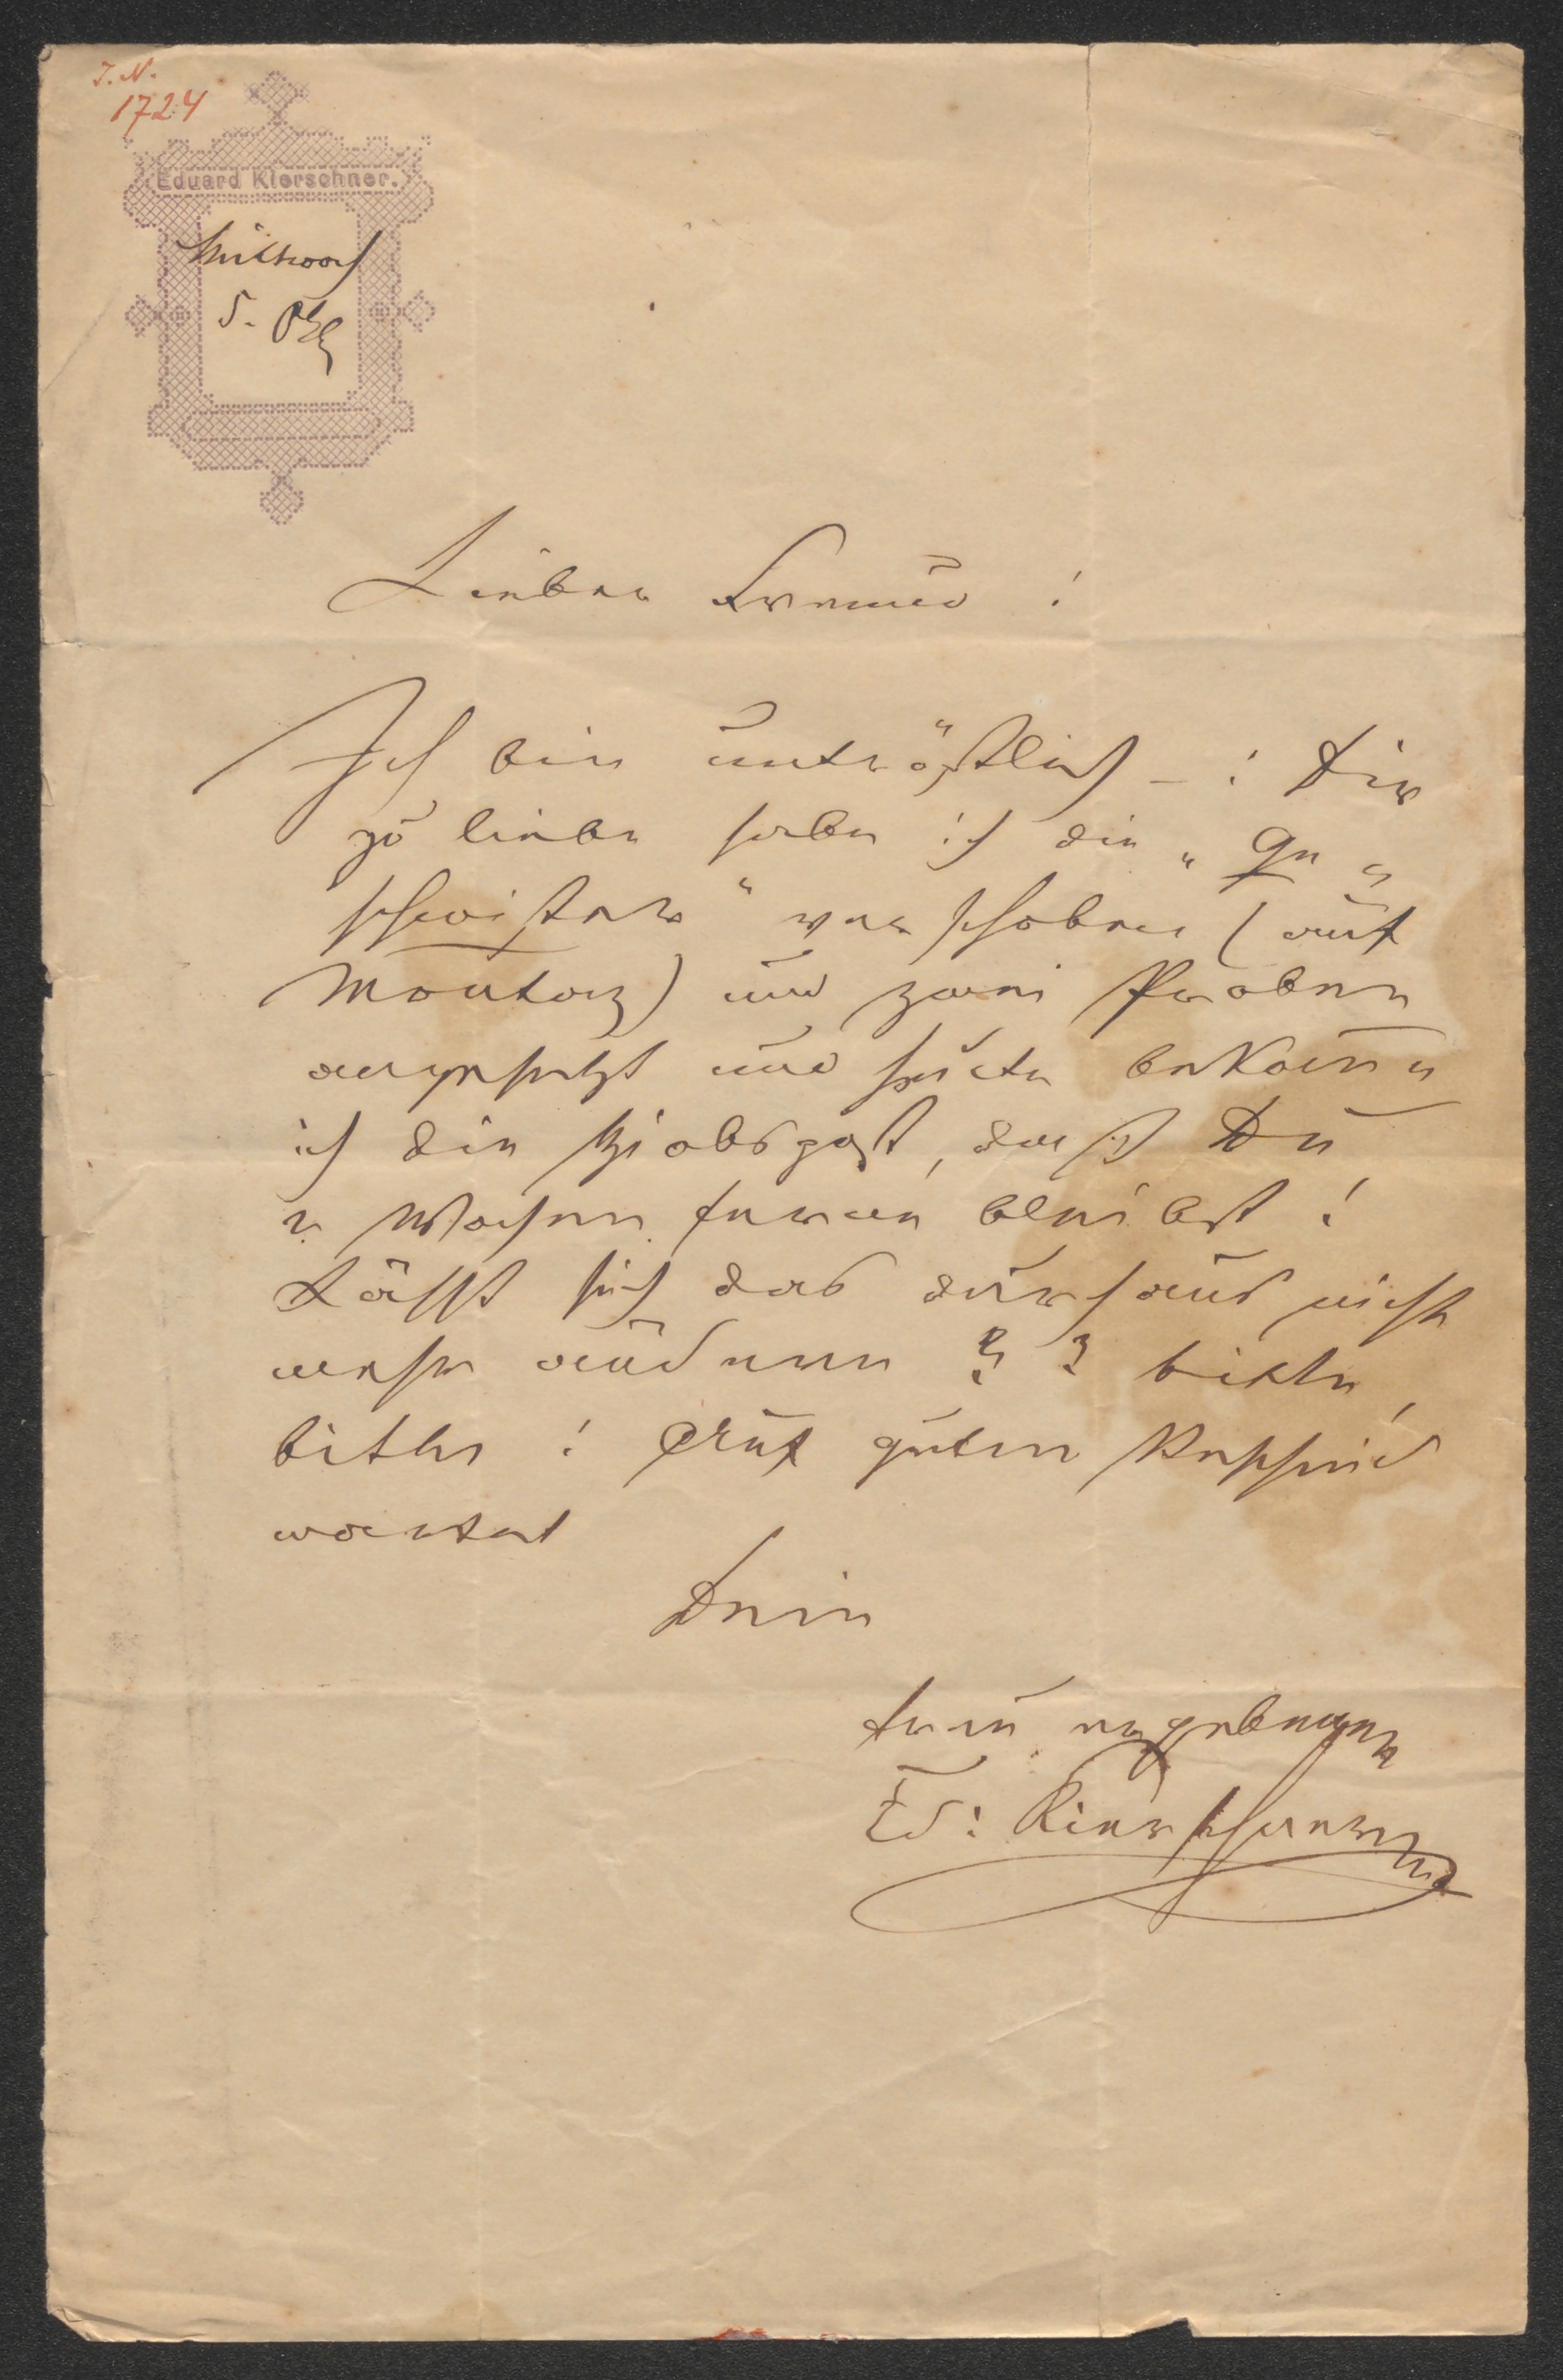 I. N.
1724
Eduard Kierschner.
Mittwoch
5.
Lieber Freund !
Ich bin untröstlich – : Dir
zu liebe habe ich die „ Ge„
schwister" verschoben (auf
Montag) und zwei Proben
angesetzt und heute bekom̄e
ich die Hiobspost, daß Du
2 Wochen ferne bleibst !
Läßt sich das durchaus nicht
mehr ändern ? ? bitte,
bitte ! Auf guten Bescheid
wartet
Dein
treu ergebener
Ed: Kierschner